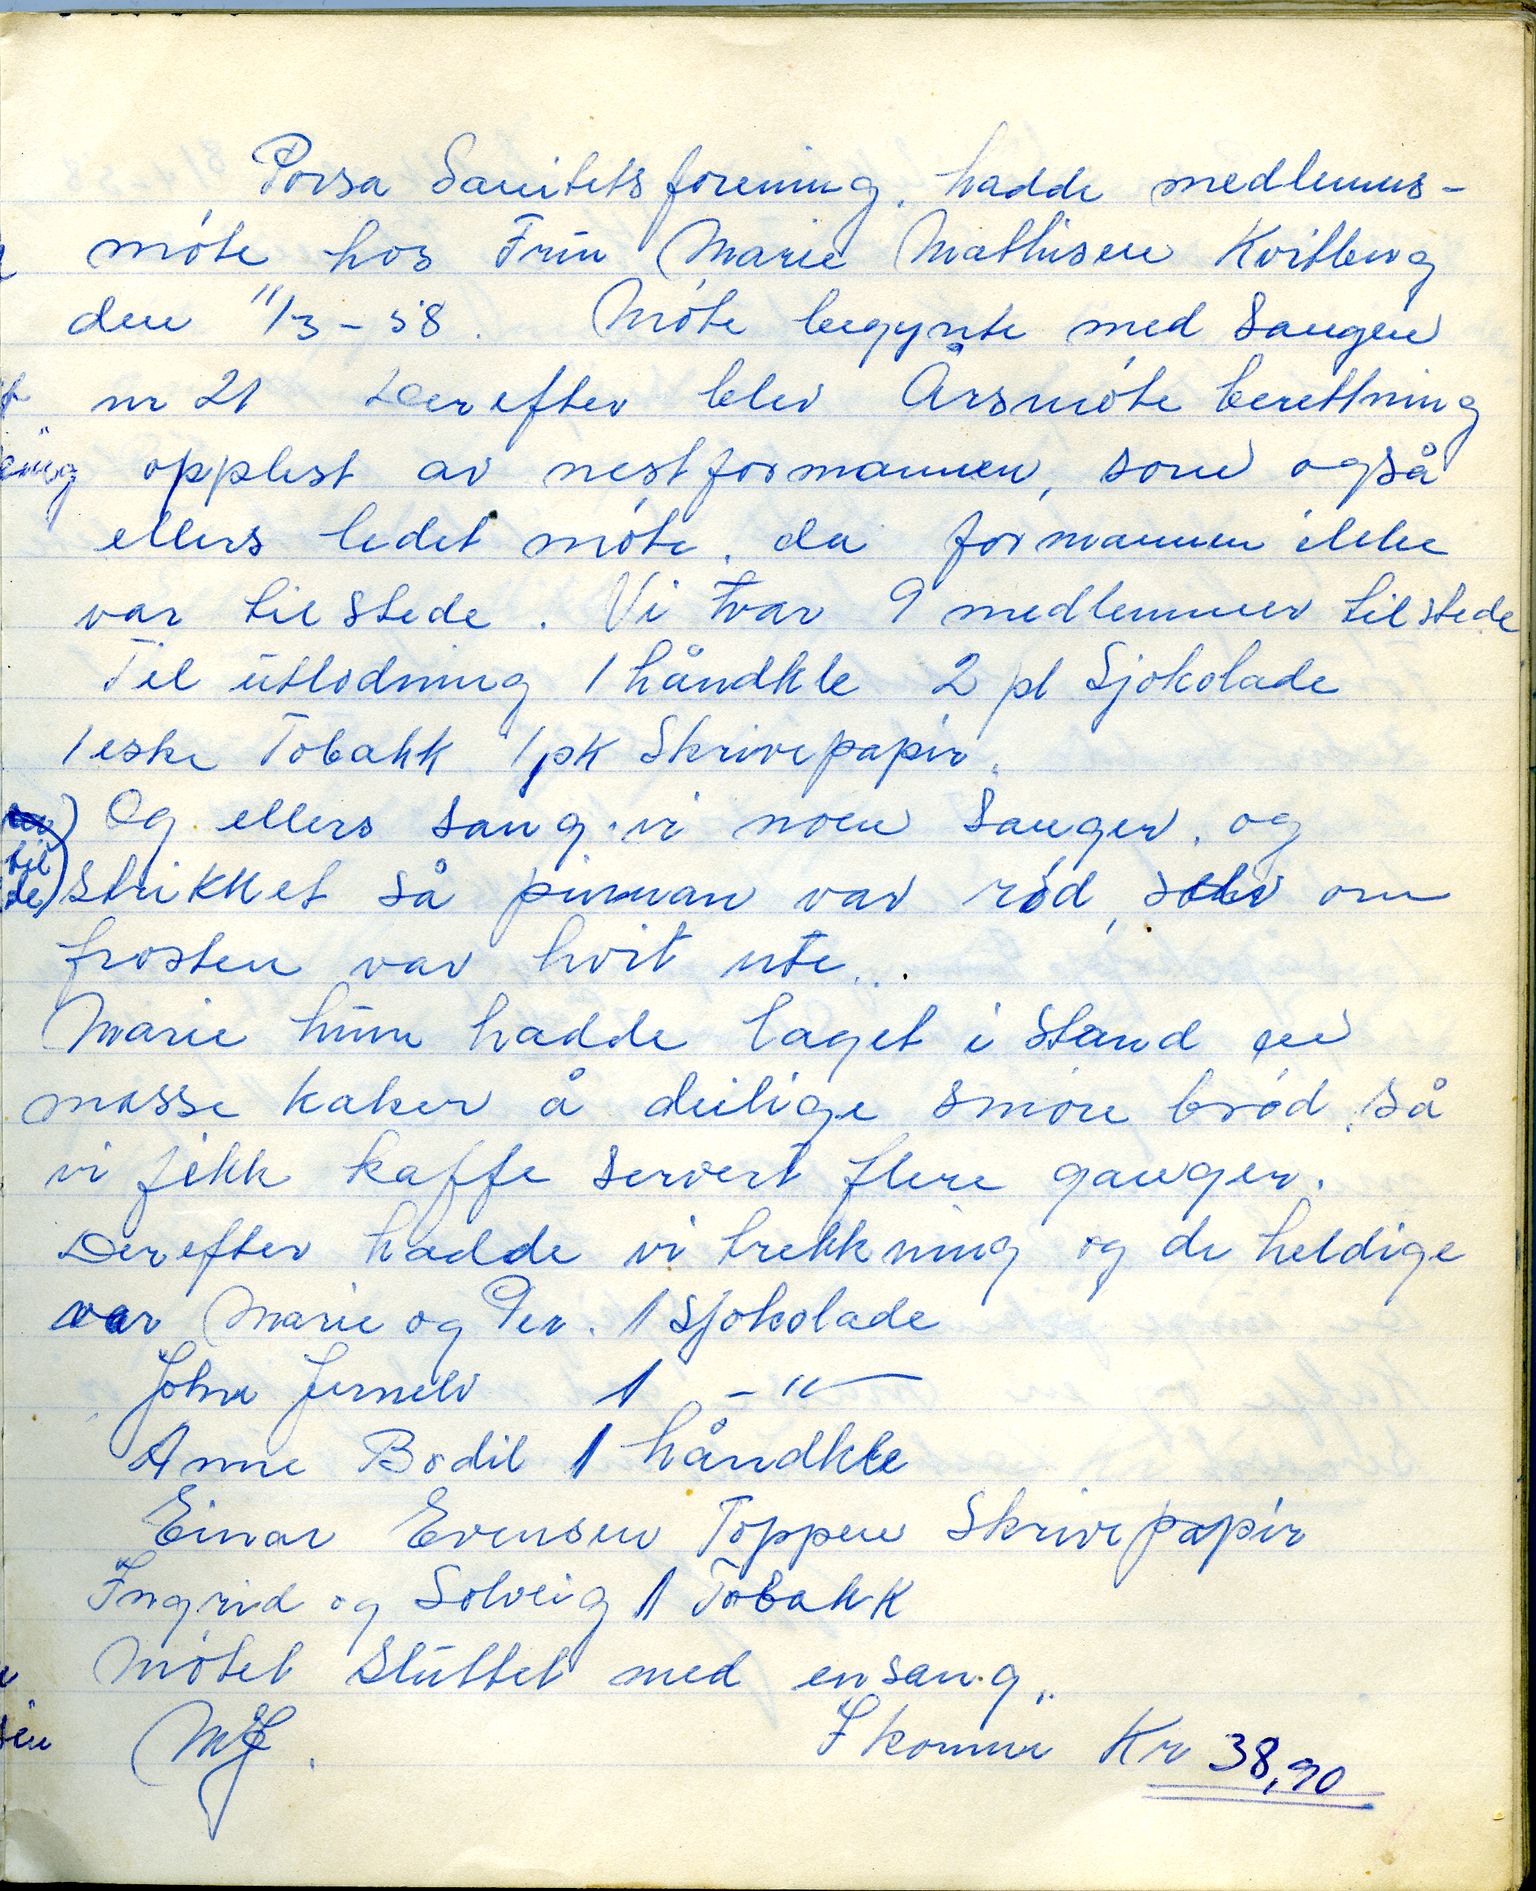 Porsa Sanitetsforening. hadde medlems-
møte hos Fru Marie Mathisen Kvitberg
den 11/3-58. Møte begynte med sangen
nr 21 Derefter blev Årsmøte berettning
opplest av nestformannen, som også
ellers ledet møte, da formannen ikke
var til stede. Vi var 9 medlemmer tilstede
Til utlodning 1 håndkle 2 pl Sjokolade
1 eske Tobakk 1 pk Skrivepapir.
Og ellers sang vi noen sanger, og
strikket så pinnan var rød, selv om
frosten var hvit ute.
Marie hun hadde laget i stand en
masse kaker å deilige smøre brød, så
vi fikk kaffe servert flere ganger.
Derefter hadde vi trekkning og de heldige
var Marie og Per. 1 Sjokolade
John 1 -"-
Anne Bodil 1 håndkle
Einar Evensen Toppen Skrivepapir
Ingrid og Solveig 1 Tobakk
Møtet sluttet med en sang.
MJ. Ikomme Kr 38,90